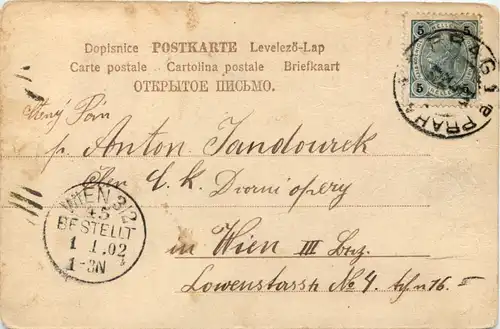 Dopisnice POSTKARTE Levelező-Lap
Carte postale Cartolina postale Briefkaart
ОТКРЫТОЕ ПИСЬМО.
5 5
5 5
PRAG 1
PRAHA
Pán
p. Anton Jandourek
Člen C. k. Dvorní opery
in Wien III Bez.
Lowenstrasse № 4. th. n 16. II
WIEN 3/2
45
BESTELLT
1 1.02
1-3N